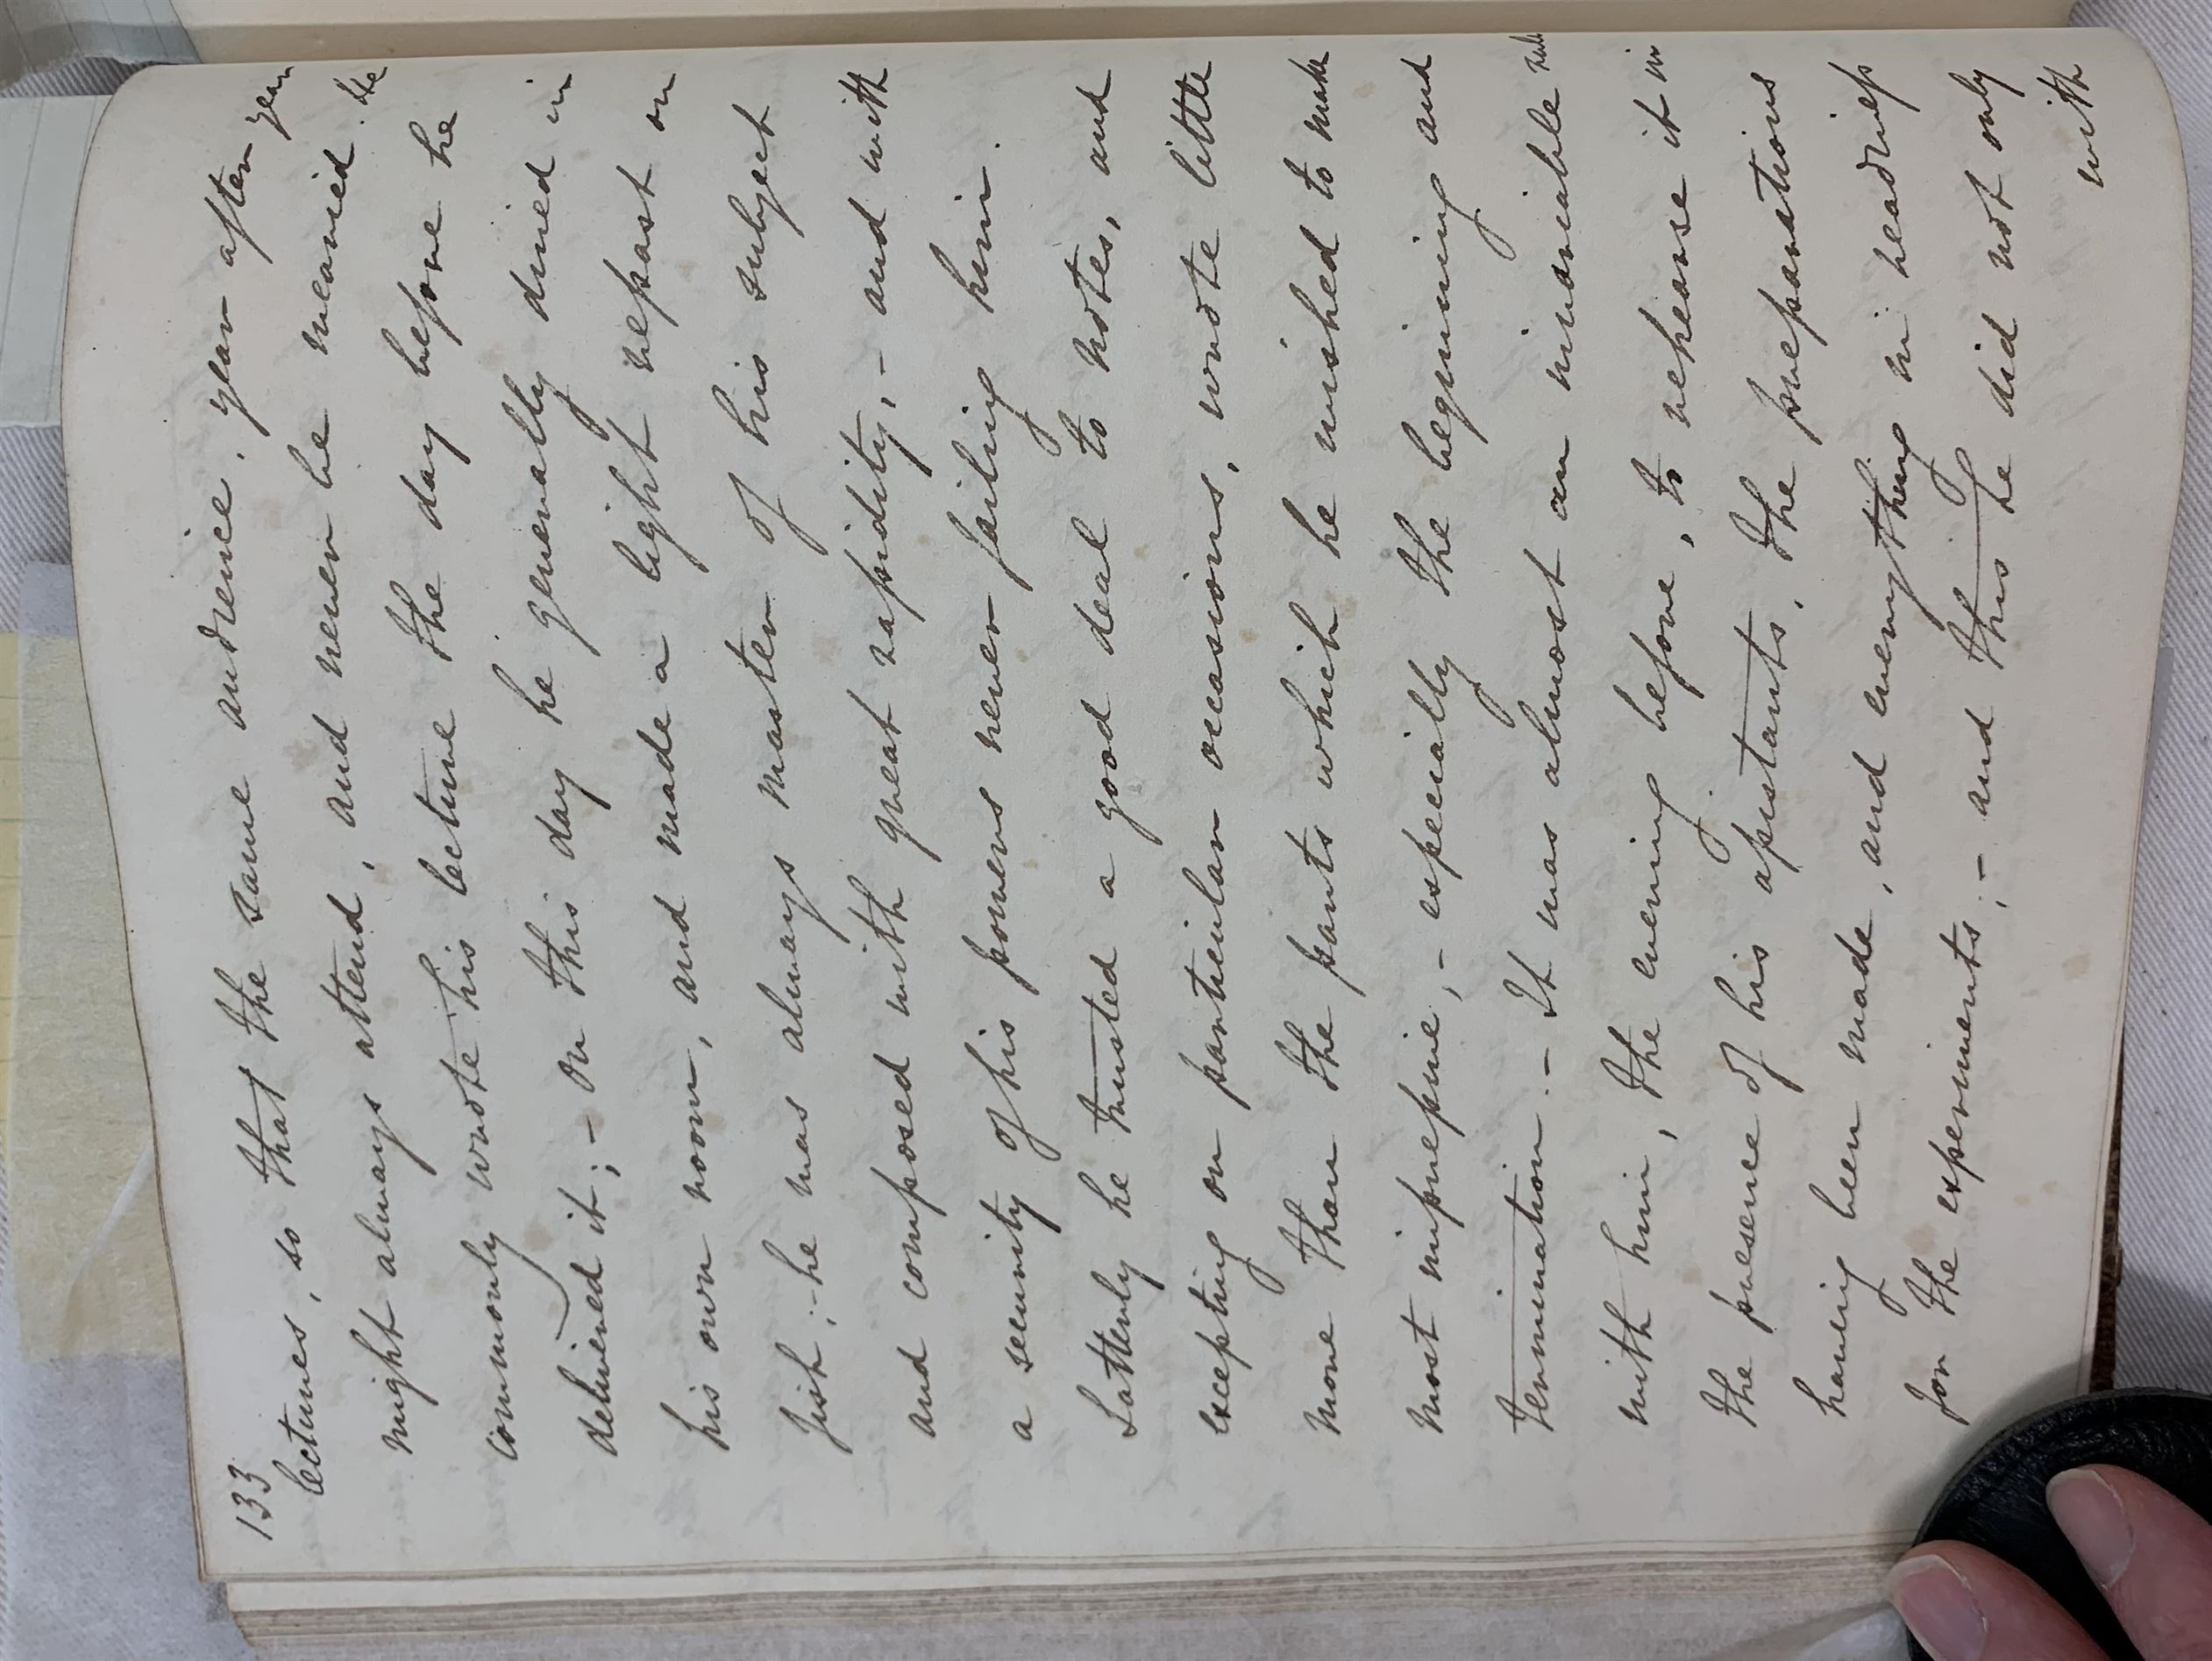 133
lectures, so that the same audience, year after year
might always attend, and never be wearied. He
commonly wrote his lecture the day before he
delivered it; – on this day he generally dined in
his own room, and made a light repast on
fish; – he was always master of his subject
and composed with great rapidity, – and with
a security of his powers never failing him.
Latterly he trusted a good deal to notes, and
excepting on particular occasions, wrote little
more than the parts which he wished to make
most impressive, – especially the beginning and
termination. – It was almost an invariable rule
with him, the evening before, to rehearse it in
the presence of his assistants, the preparations
having been made, and everything in readiness
for the experiments; – and this he did not only
with